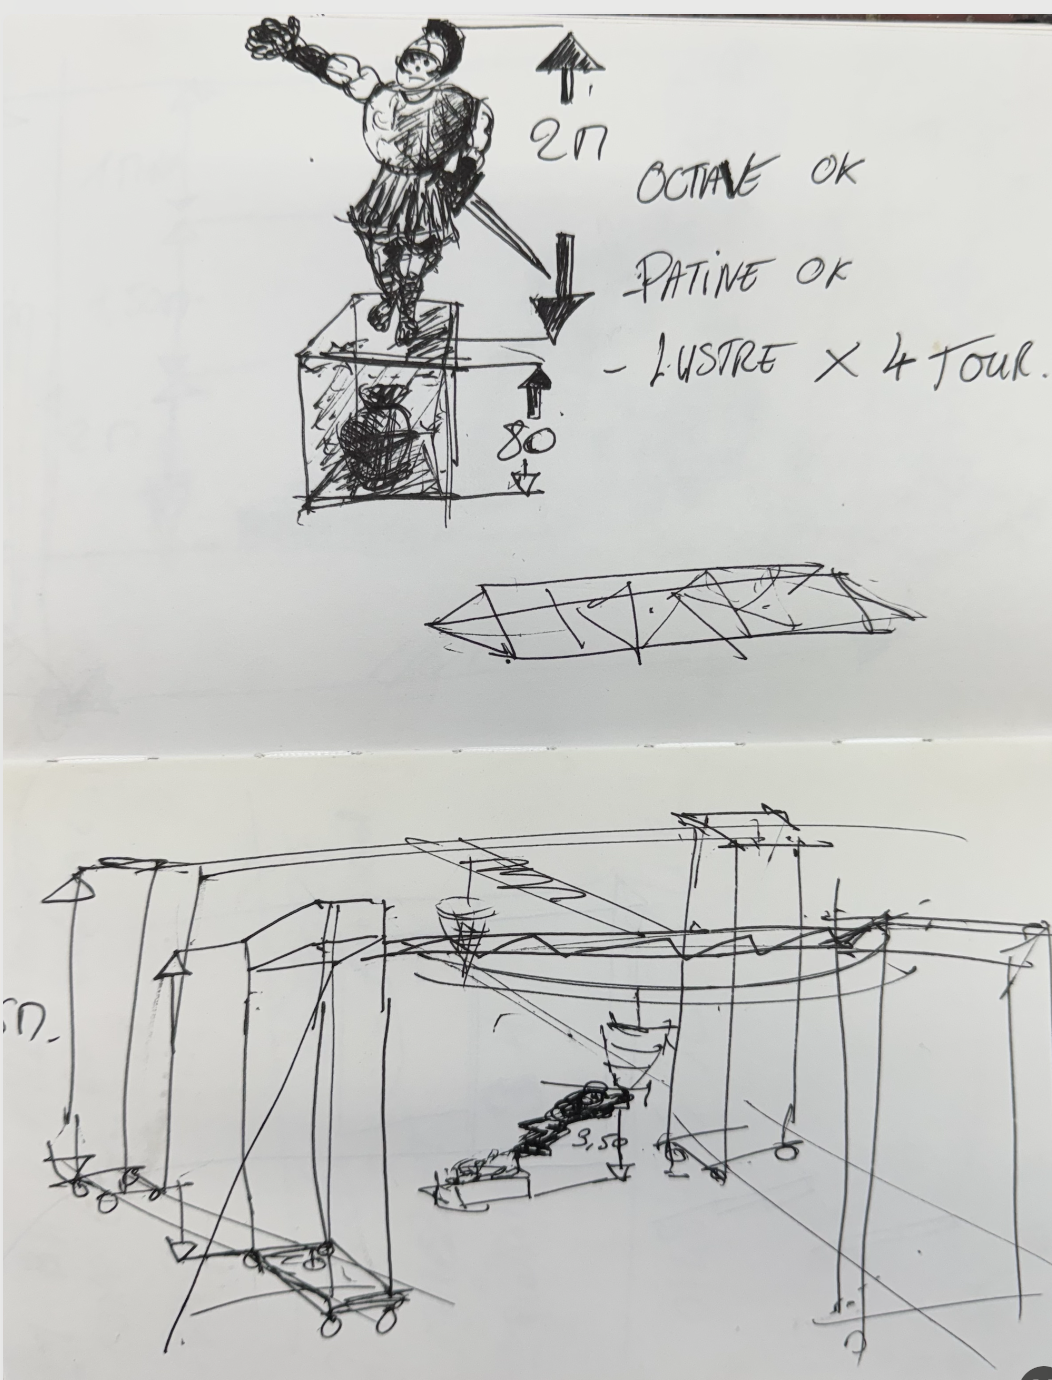 2M
OCTAVE OK
- PATINE OK
- LUSTRE X 4 TOUR.
80
3,50